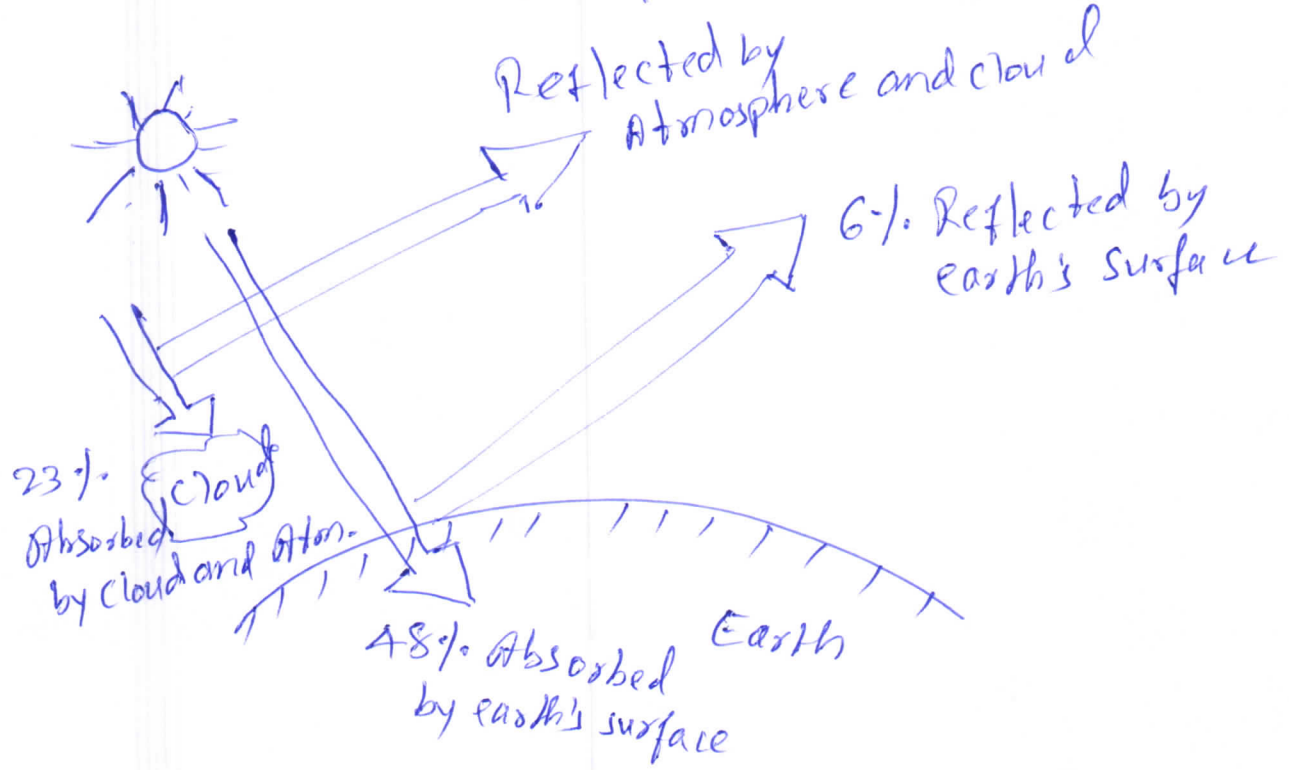 Reflected by
Atmosphere and cloud
6%. Reflected by
earth's surface
23%.
Cloud
Absorbed
by Cloud and Atm.
48%. Absorbed
by earth's surface
Earth